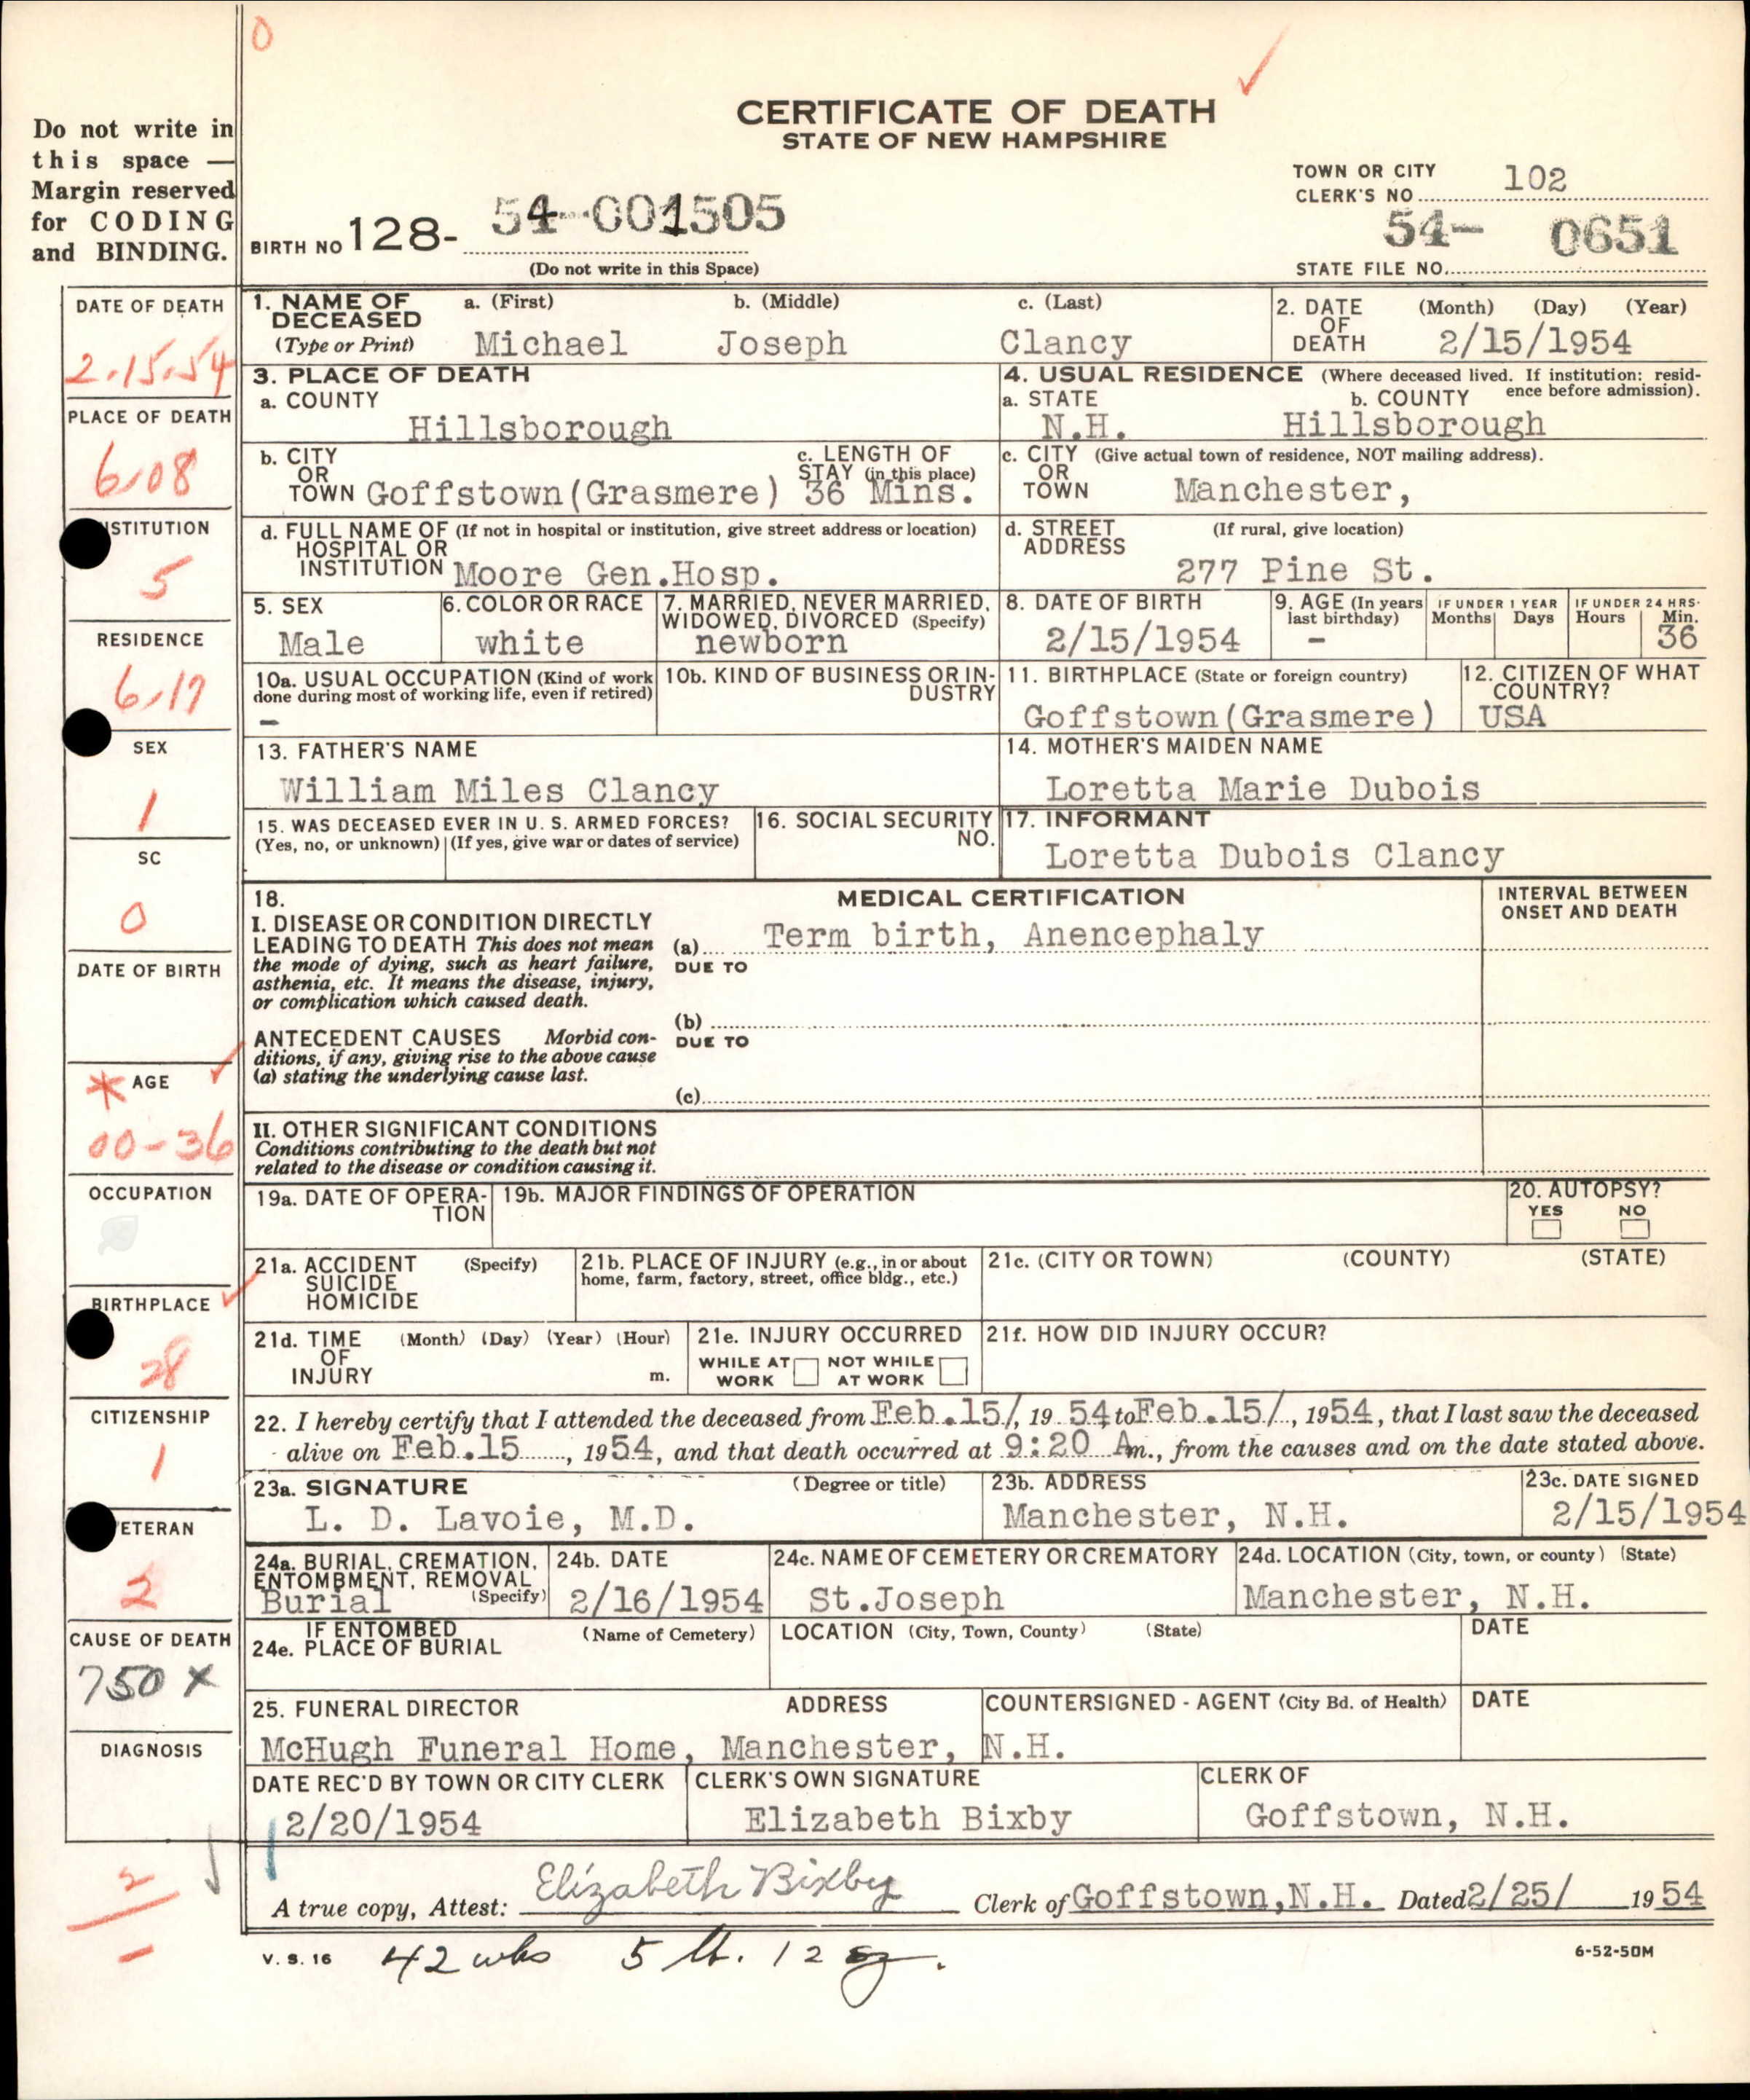 0
✓
CERTIFICATE OF DEATH
STATE OF NEW HAMPSHIRE
Do not write in
this space —
Margin reserved
for CODING
and BINDING.
TOWN OR CITY
CLERK'S NO. 102
BIRTH NO 128- 54-001505
(Do not write in this Space)
54- 0651
STATE FILE NO.
DATE OF DEATH
2.15.54
PLACE OF DEATH
6-08
INSTITUTION
5
RESIDENCE
6-17
SEX
1
SC
0
DATE OF BIRTH
* AGE ✓
00-36
OCCUPATION
BIRTHPLACE ✓
28
CITIZENSHIP
1
VETERAN
2
CAUSE OF DEATH
750 X
DIAGNOSIS
1. NAME OF DECEASED (Type or Print) a. (First) b. (Middle) c. (Last)
Michael Joseph Clancy
2. DATE OF DEATH (Month) (Day) (Year)
2/15/1954
3. PLACE OF DEATH
a. COUNTY
Hillsborough
4. USUAL RESIDENCE (Where deceased lived. If institution: residence before admission).
a. STATE b. COUNTY
N.H. Hillsborough
b. CITY OR TOWN Goffstown(Grasmere)
c. LENGTH OF STAY (in this place) 36 Mins.
c. CITY (Give actual town of residence, NOT mailing address).
OR TOWN Manchester,
d. FULL NAME OF (If not in hospital or institution, give street address or location)
HOSPITAL OR
INSTITUTION Moore Gen.Hosp.
d. STREET ADDRESS (If rural, give location)
277 Pine St.
5. SEX
Male
6. COLOR OR RACE
white
7. MARRIED, NEVER MARRIED,
WIDOWED, DIVORCED (Specify)
newborn
8. DATE OF BIRTH
2/15/1954
9. AGE (In years last birthday)
-
IF UNDER 1 YEAR
Months Days
IF UNDER 24 HRS.
Hours Min.
36
10a. USUAL OCCUPATION (Kind of work
done during most of working life, even if retired)
-
10b. KIND OF BUSINESS OR INDUSTRY
11. BIRTHPLACE (State or foreign country)
Goffstown(Grasmere)
12. CITIZEN OF WHAT COUNTRY?
USA
13. FATHER'S NAME
William Miles Clancy
14. MOTHER'S MAIDEN NAME
Loretta Marie Dubois
15. WAS DECEASED EVER IN U. S. ARMED FORCES?
(Yes, no, or unknown) (If yes, give war or dates of service)
16. SOCIAL SECURITY NO.
17. INFORMANT
Loretta Dubois Clancy
18.
MEDICAL CERTIFICATION
INTERVAL BETWEEN
ONSET AND DEATH
I. DISEASE OR CONDITION DIRECTLY
LEADING TO DEATH This does not mean
the mode of dying, such as heart failure,
asthenia, etc. It means the disease, injury,
or complication which caused death.
(a) Term birth, Anencephaly
DUE TO
(b)
ANTECEDENT CAUSES Morbid conditions, if any, giving rise to the above cause
(a) stating the underlying cause last.
DUE TO
(c)
II. OTHER SIGNIFICANT CONDITIONS
Conditions contributing to the death but not
related to the disease or condition causing it.
19a. DATE OF OPERATION
19b. MAJOR FINDINGS OF OPERATION
20. AUTOPSY?
YES NO
21a. ACCIDENT (Specify)
SUICIDE
HOMICIDE
21b. PLACE OF INJURY (e.g., in or about
home, farm, factory, street, office bldg., etc.)
21c. (CITY OR TOWN) (COUNTY) (STATE)
21d. TIME OF INJURY (Month) (Day) (Year) (Hour)
m.
21e. INJURY OCCURRED
WHILE AT WORK NOT WHILE AT WORK
21f. HOW DID INJURY OCCUR?
22. I hereby certify that I attended the deceased from Feb.15/, 19 54 to Feb.15/, 1954, that I last saw the deceased
alive on Feb.15, 1954, and that death occurred at 9:20 Am., from the causes and on the date stated above.
23a. SIGNATURE (Degree or title)
L. D. Lavoie, M.D.
23b. ADDRESS
Manchester, N.H.
23c. DATE SIGNED
2/15/1954
24a. BURIAL, CREMATION,
ENTOMBMENT, REMOVAL (Specify)
Burial
24b. DATE
2/16/1954
24c. NAME OF CEMETERY OR CREMATORY
St.Joseph
24d. LOCATION (City, town, or county) (State)
Manchester, N.H.
IF ENTOMBED
24e. PLACE OF BURIAL (Name of Cemetery)
LOCATION (City, Town, County) (State)
DATE
25. FUNERAL DIRECTOR ADDRESS
McHugh Funeral Home, Manchester, N.H.
COUNTERSIGNED - AGENT (City Bd. of Health)
DATE
DATE REC'D BY TOWN OR CITY CLERK
2/20/1954
CLERK'S OWN SIGNATURE
Elizabeth Bixby
CLERK OF
Goffstown, N.H.
2
A true copy, Attest: Elizabeth Bixby Clerk of Goffstown,N.H. Dated 2/25/ 19 54
V. S. 16
42 wks 5 lb. 12 oz.
6-52-50M